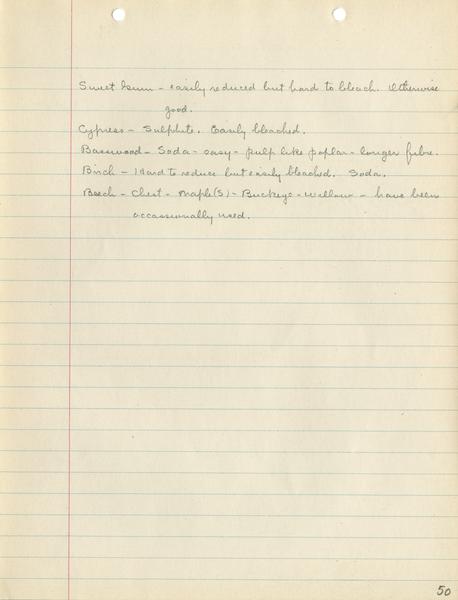 Sweet Gum - easily reduced but hard to bleach. Otherwise
good.
Cypress - Sulphite. Easily bleached.
Basswood - Soda - easy - pulp like poplar - longer fibre.
Birch - Hard to reduce but easily bleached. Soda.
Beech - Chest - Maple(s) - Buckeye - Willow - have been
occassionally used.
50